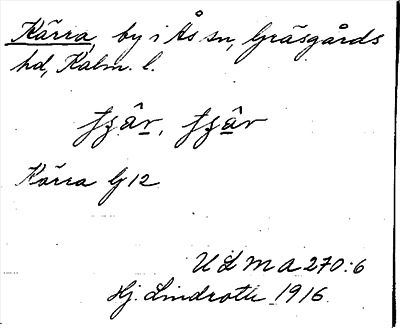 Kärra, by i Ås sn, Gräsgårds
hd, Kalm. l.
Kärra G 12
ULMA 270:6
Hj. Lindroth 1916.